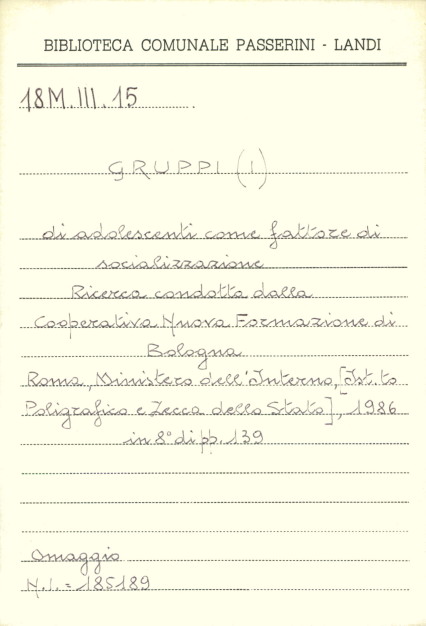 BIBLIOTECA COMUNALE PASSERINI - LANDI
18M.III.15
GRUPPI (I)
di adolescenti come fattore di
socializzazione
Ricerca condotta dalla
Cooperativa Nuova Formazione di
Bologna
Roma, Ministero dell'Interno, [Ist.to
Poligrafico e Zecca dello Stato], 1986
in 8° di pp. 139
Omaggio
N.I. = 185189